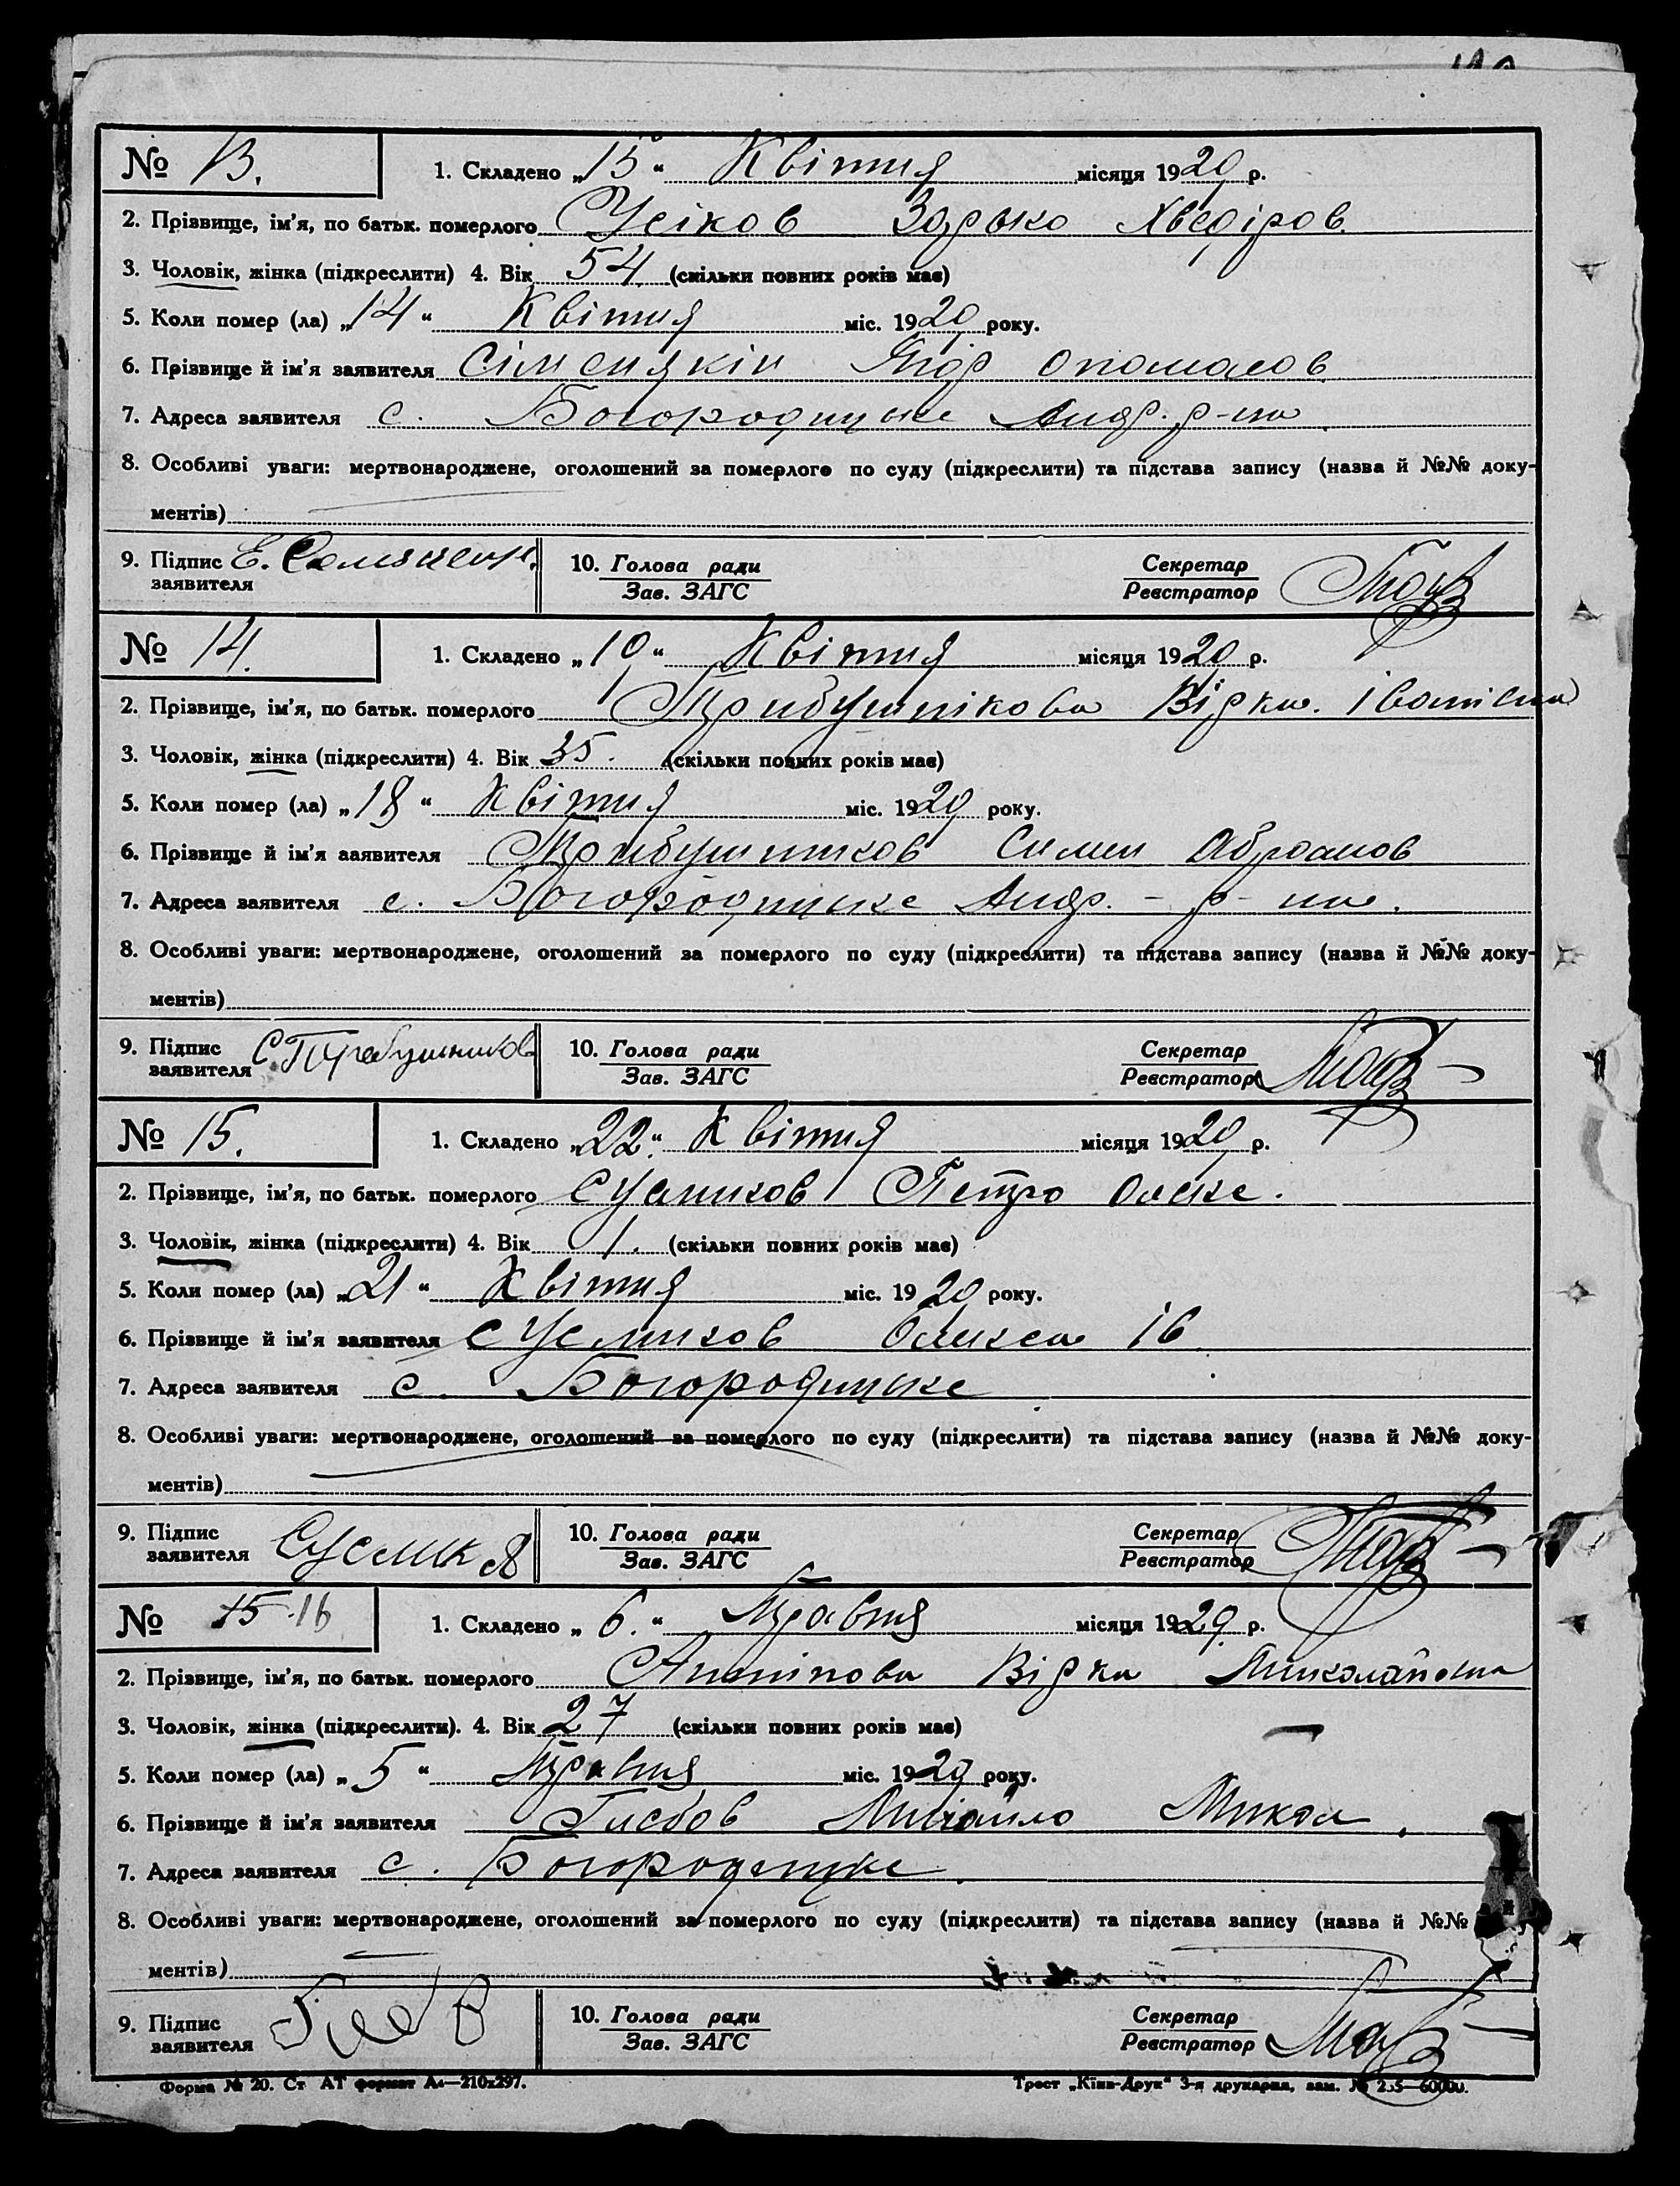 № 13. 1. Складено „15“ Квітня місяця 1929 р.
2. Прізвище, ім'я, по батьк. померлого Усіков Хведіров.
3. Чоловік, жінка (підкреслити) 4. Вік 54 (скільки повних років має)
5. Коли помер (ла) „14“ Квітня міс. 1929 року.
6. Прізвище й ім'я заявителя
7. Адреса заявителя с. Богородицьке Андр. р-на
8. Особливі уваги: мертвонароджене, оголошений за померлого по суду (підкреслити) та підстава запису (назва й №№ доку-
ментів)
9. Підпис заявителя Е. 10. Голова ради Зав. ЗАГС Секретар Реєстратор
№ 14. 1. Складено „19“ Квітня місяця 1929 р.
2. Прізвище, ім'я, по батьк. померлого Трибушнікова Вірка Іванівна
3. Чоловік, жінка (підкреслити) 4. Вік 35. (скільки повних років має)
5. Коли помер (ла) „18“ Квітня міс. 1929 року.
6. Прізвище й ім'я заявителя Трибушников Симен Абрамов
7. Адреса заявителя с. Богородицьке Андр. - р-на.
8. Особливі уваги: мертвонароджене, оголошений за померлого по суду (підкреслити) та підстава запису (назва й №№ доку-
ментів)
9. Підпис заявителя С. Требушников 10. Голова ради Зав. ЗАГС Секретар Реєстратор
№ 15. 1. Складено „22“ Квітня місяця 1929 р.
2. Прізвище, ім'я, по батьк. померлого Сусликов Петро Олекс.
3. Чоловік, жінка (підкреслити) 4. Вік 1. (скільки повних років має)
5. Коли помер (ла) „21“ Квітня міс. 1929 року.
6. Прізвище й ім'я заявителя Сусликов Олекса Ів
7. Адреса заявителя с. Богородицьке
8. Особливі уваги: мертвонароджене, оголошений за померлого по суду (підкреслити) та підстава запису (назва й №№ доку-
ментів)
9. Підпис заявителя Суслик 10. Голова ради Зав. ЗАГС Секретар Реєстратор
№ 15 16 1. Складено „6.“ Травня місяця 1929 р.
2. Прізвище, ім'я, по батьк. померлого Антіпова Вірка Миколаївна
3. Чоловік, жінка (підкреслити). 4. Вік 27 (скільки повних років має)
5. Коли помер (ла) „5“ Травня міс. 1929 року.
6. Прізвище й ім'я заявителя Глєбов Михайло Микол.
7. Адреса заявителя с. Богородицьке
8. Особливі уваги: мертвонароджене, оголошений за померлого по суду (підкреслити) та підстава запису (назва й №№
ментів)
9. Підпис заявителя 10. Голова ради Зав. ЗАГС Секретар Реєстратор
Форма № 20. Ст АТ формат А4—210х297. Трест „Київ-Друк“ 3-я друкарня, зам. № 235—60000.